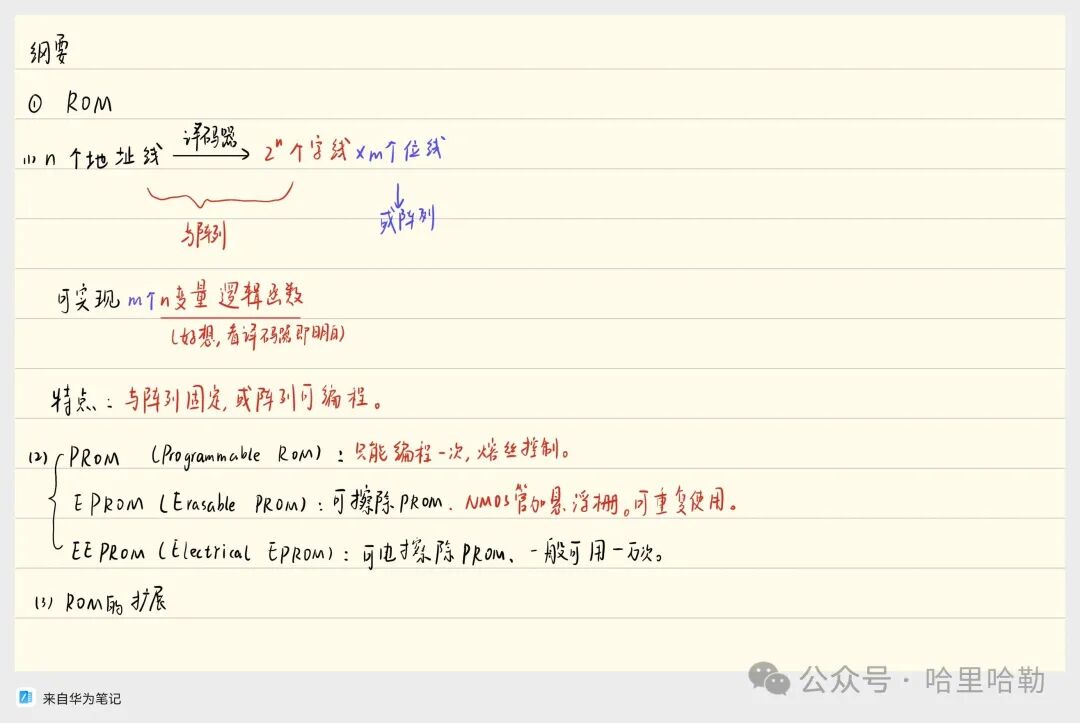 纲要
① ROM
(1) n个地址线 译码器 2ⁿ个字线×m个位线
与阵列 或阵列
可实现m个n变量逻辑函数
(好想,看译码器即明白)
特点:与阵列固定,或阵列可编程。
(2) PROM (Programmable ROM):只能编程一次,熔丝控制。
EPROM (Erasable PROM):可擦除PROM. NMOS管加悬浮栅。可重复使用。
EEPROM (Electrical EPROM):可电擦除PROM、一般可用一万次。
(3) ROM的扩展
来自华为笔记
公众号·哈里哈勒